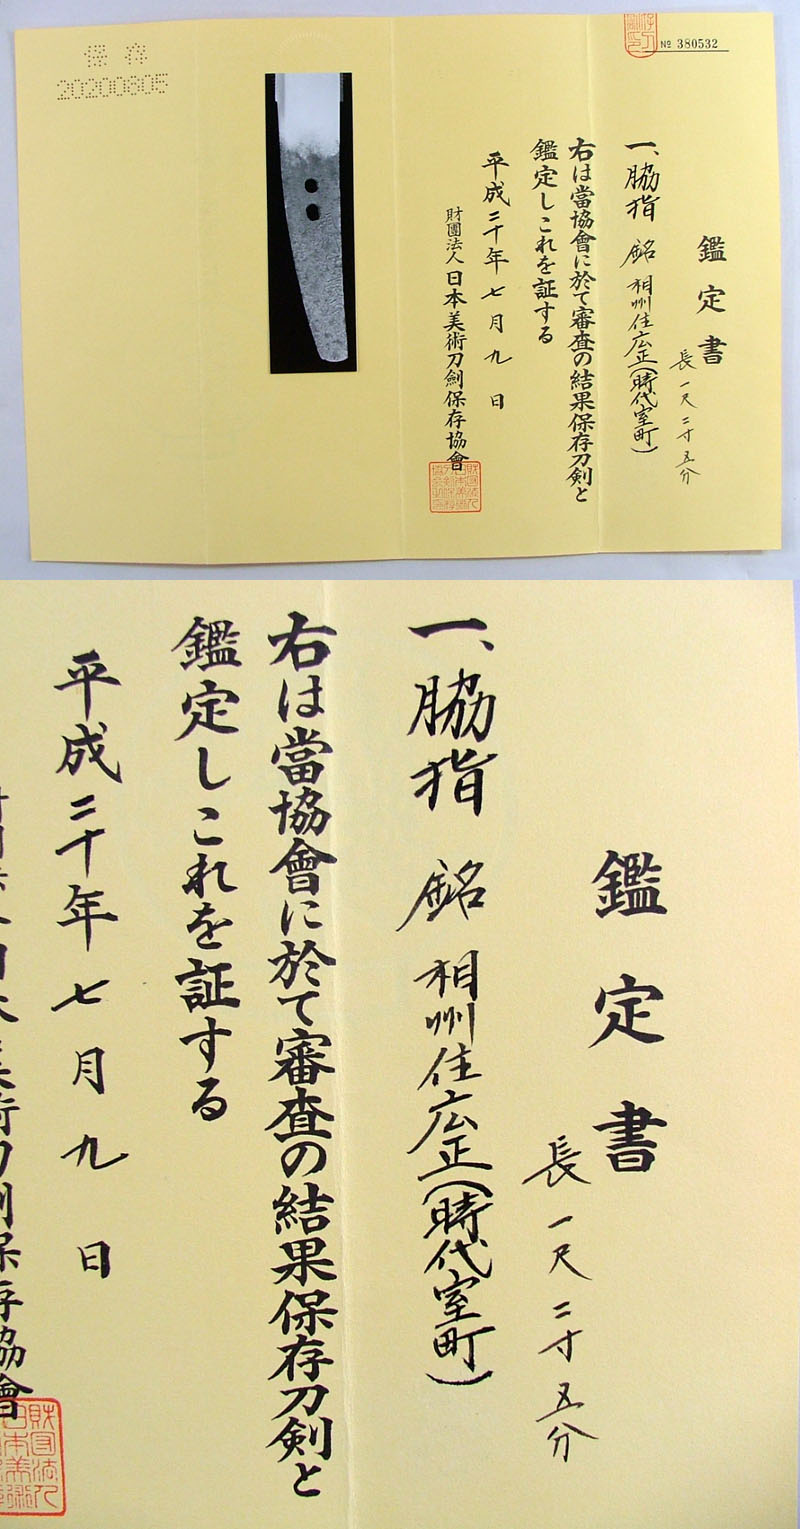 保存
20200605
№ 380532
鑑定書
長一尺二寸五分
一、脇指 銘 相州住広正(時代室町)
右は當協會に於て審査の結果保存刀剣と
鑑定しこれを証する
平成二十年七月九日
財團法人日本美術刀劍保存協會
鑑定書
長一尺二寸五分
一、脇指 銘 相州住広正(時代室町)
右は當協會に於て審査の結果保存刀剣と
鑑定しこれを証する
平成二十年七月九日